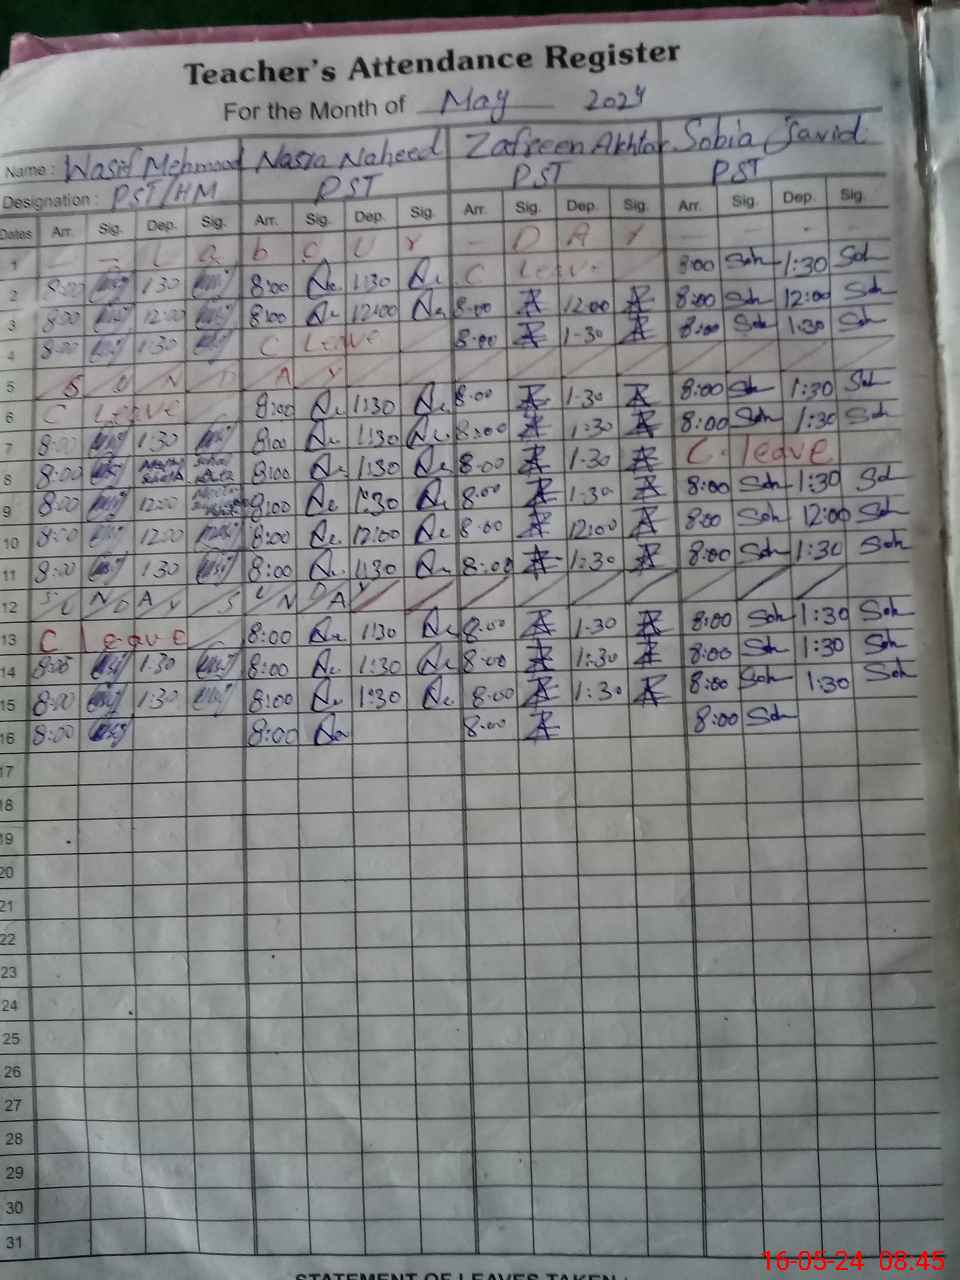 Teacher's Attendance Register
For the Month of May 2024
Name : Wasif Mehmood Nasra Naheed Zafreen Akhtar Sobia Javid
Designation : PST/HM PST PST PST
Dates Arr. Sig. Dep. Sig. Arr. Sig. Dep. Sig. Arr. Sig. Dep. Sig. Arr. Sig. Dep. Sig.
1 — — L a b o u r — D A Y — — - -
2 8:00 1:30 8:00 1:30 C Leave 8:00 Soh 1:30 Soh
3 8:00 12:00 8:00 12:00 8:00 12:00 8:00 Soh 12:00 Soh
4 8:00 1:30 C Leave 8:00 1-30 8:00 Soh 1:30 Soh
5 S U N D A Y
6 C Leave 8:00 1:30 8:00 1-30 8:00 Soh 1:30 Soh
7 8:00 1:30 8:00 1:30 8:00 1:30 8:00 Soh 1:30 Soh
8 8:00 8:00 1:30 8:00 1-30 C. leave
9 8:00 12:00 8:00 1:30 8:00 1-30 8:00 Soh 1:30 Soh
10 8:00 12:00 8:00 12:00 8:00 12:00 8:00 Soh 12:00 Soh
11 8:00 1:30 8:00 1:30 8:00 1:30 8:00 Soh 1:30 Soh
12 S U N D A Y S U N D A Y
13 C leave 8:00 1:30 8:00 1-30 8:00 Soh 1:30 Soh
14 8:00 1:30 8:00 1:30 8:00 1:30 8:00 Soh 1:30 Soh
15 8:00 1:30 8:00 1:30 8:00 1:30 8:00 Soh 1:30 Soh
16 8:00 8:00 8:00 8:00 Soh
17
18
19
20
21
22
23
24
25
26
27
28
29
30
31
STATEMENT OF LEAVES TAKEN :
16-05-24 08:45